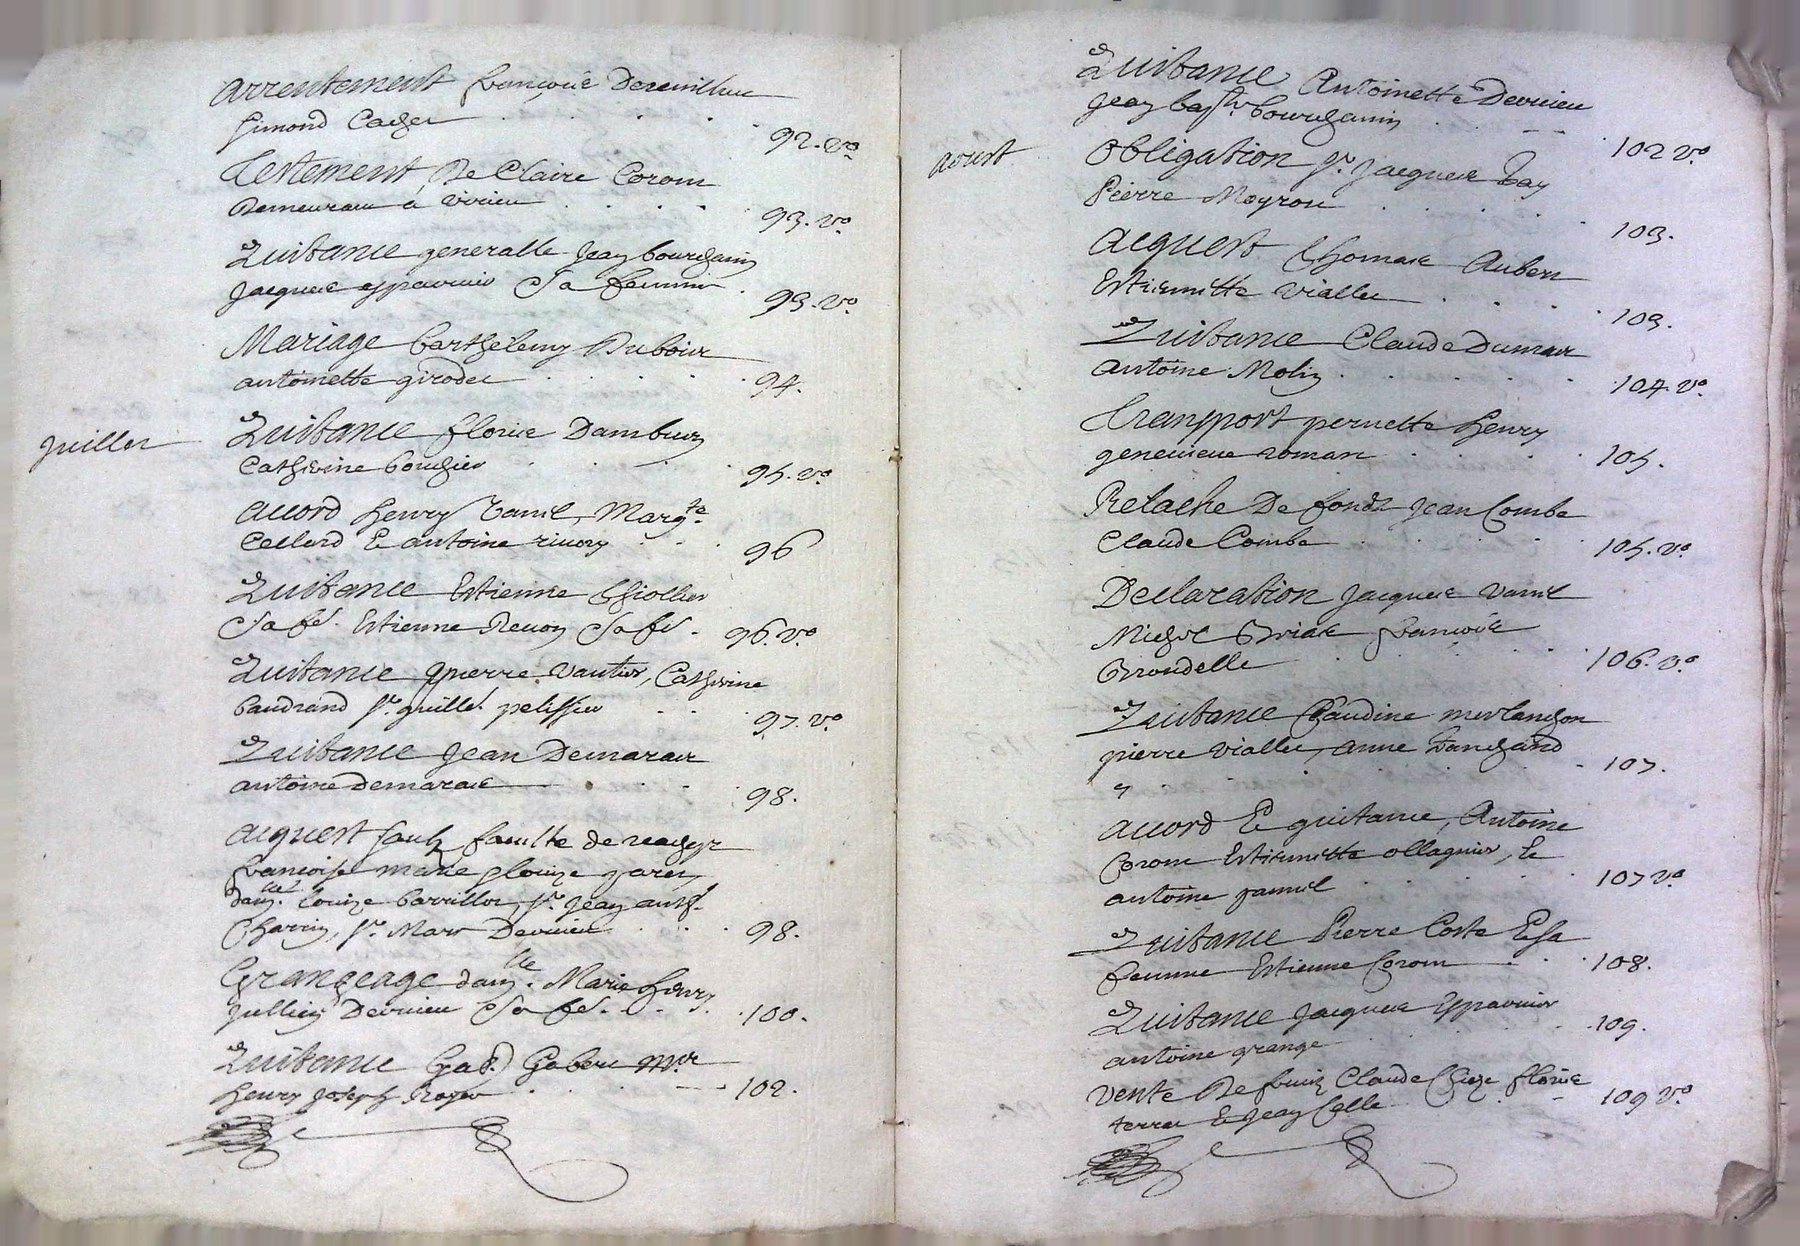 arrentement françoise
Simond . . . . 92. vo
Testement De Claire Corom
Demeurant a virieu . . . . 93. vo
Quittance generalle Jean bourchanin
Jacques epparvier Sa femme . 93. vo
Mariage barthelemy Dubois
antoinette girodet . . . . 94.
Juillet
Quittance florie
Catherine . . . . 95. vo
accord henry vanel, Margte
Cellard & antoine rivory . . 96
Quittance Estienne Thiollier
Sa fe. Estienne Revon Sa fe. 96. vo
Quittance pierre vautier, Catherine
baudrand sr. guille. pelissier . . . 97. vo
Quittance Jean Demarais
antoine demarais . . . 98.
acquest soubz faculte de
francoise marie
damlle. Louize barrillot, sr. Jean
sr. Marc Devirieu . . . 98.
Grangeage damlle. Marie henry
Jullien Devirieu Sa fe. . . . 100.
Quittance Mr
henry Joseph Royer . . . 102.
Quittance Antoinette Devirieu
Jean bapte bourchanin . . 102 vo
aoust
Obligation sr. Jacques
Pierre Meyrou . . . . 103.
acquest Thomas Aubert
Estiennette viallet . . . . 103.
Quittance Claude Dumas
antoine Molin . . . . . 104. vo
Transport pernette henry
genevieve roman . . . . 105.
Relache De fonds Jean Combe
Claude Combe . . . . 105. vo
Declaration Jacques vanel
Michel françoise
Brondelle . . . . 106. vo
Quittance Claudine merlanchon
pierre viallet, anne
. . . . 107.
accord & quitance, Antoine
Corom Estiennette ollagnier, &
antoine . . . . 107 vo
Quittance Pierre Coste & sa
femme Estienne Corom . . 108.
Quittance Jacques epparvier
antoine grange . . . . 109.
vente De Claude florie
terras & Jean Celle . . . 109 vo